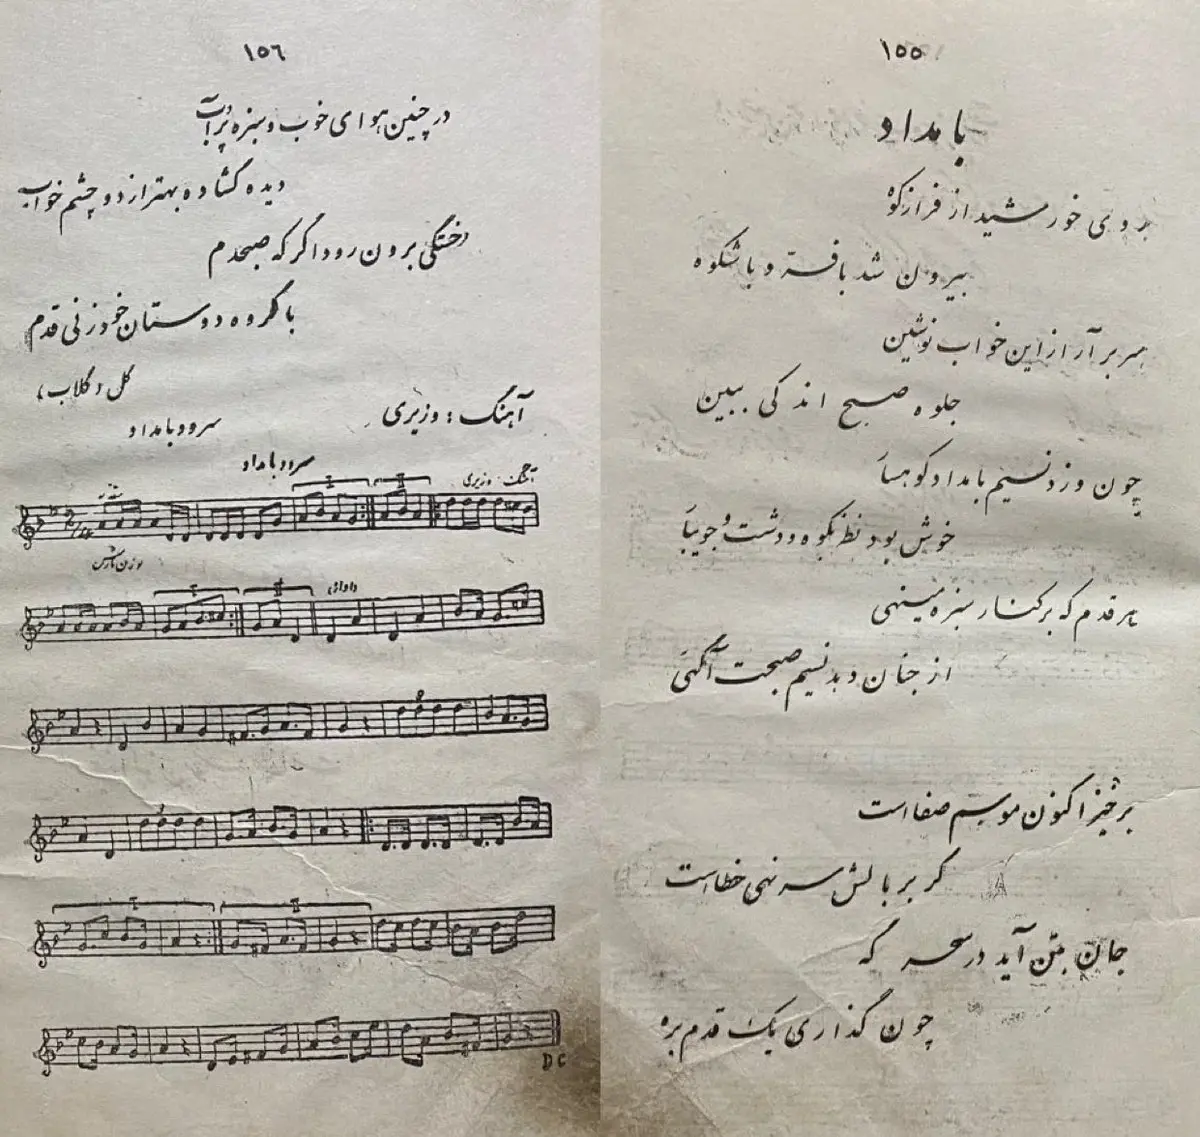 ۱۵۵
بامداد
روی خورشید از فراز کوه
بیرون شد با فرّ و با شکوه
سر بر آر از این خواب نوشین
جلوه صبح اندکی ببین
چون وزد نسیم بامداد کوهسا
خوش بود نظر بکوه و دشت و جویبا
هر قدم که بر کنار سبزه مینهی
از جنان دهد نسیم صبحت آگهی
برخیز اکنون موسم صفا است
گر بر بالش سر نهی خطا است
جان بتن آید در سحر گه
چون گذاری یک قدم بره
۱۵۶
در چنین هوای خوب و سبزه پر آب
دیده گشاده بهتر از دو چشم خواب
خستگی برون رود اگر که صبحدم
با گروه دوستان خود زنی قدم
گل و گلاب
آهنگ : وزیری
سرود بامداد
سرود بامداد
آهنگ وزیری
I
II
بوزن مارش
I
II
I
II
D C